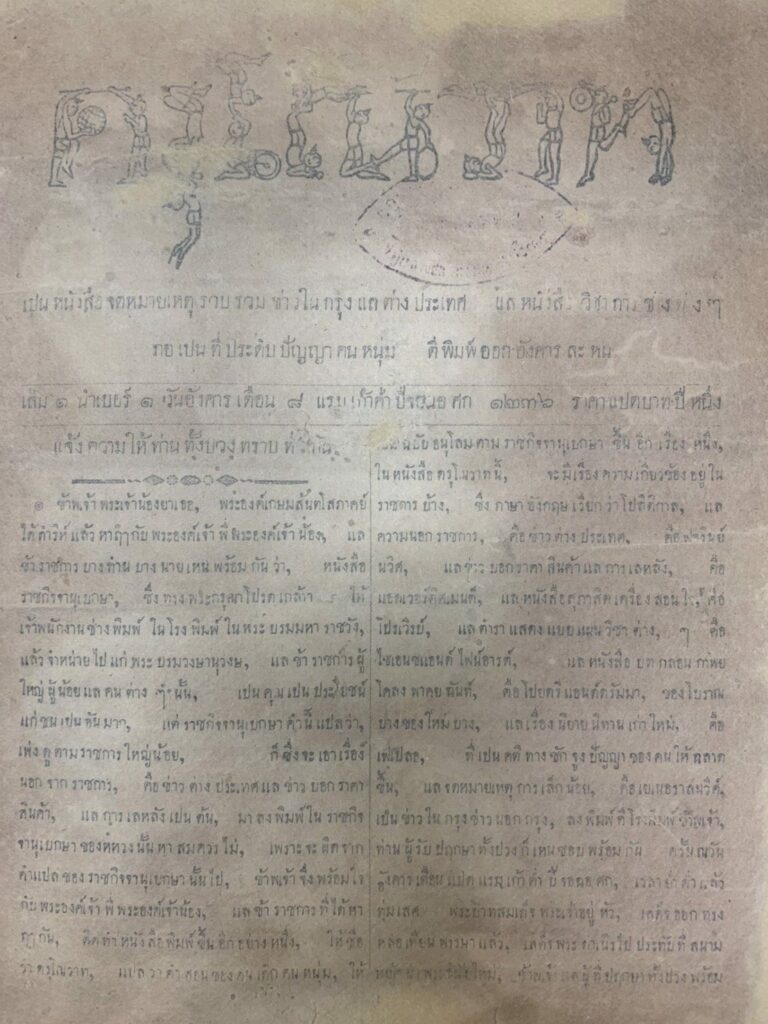 ดรุโณวาท
เปน หนังสือ จดหมายเหตุ รวบ รวม ข่าว ใน กรุง แล ต่าง ประเทศ แล หนังสือ วิชา การ ช่าง ต่าง ๆ
กอ เปน ที่ ประดับ ปัญญา คน หนุ่ม ตี พิมพ์ ออก อังคาร ละ หน
เล่ม ๑ นำเบอร์ ๑ วัน อังคาร เดือน ๘ แรม เก้า ค่ำ ปีจอฉอ ศก ๑๒๓๖ ราคา แปด บาท ปี หนึ่ง
แจ้ง ความ ให้ ท่าน ทั้ง ปวง ทราบ ทั่ว กัน
๏ ข้าพเจ้า พระเจ้าน้องยาเธอ, พระองค์เกษมสันต์โสภาคย์
ได้ ดำริห์ แล้ว หาฤๅ กับ พระองค์เจ้า พี่ พระองค์เจ้า น้อง, แล
ข้า ราชการ บาง ท่าน บาง นาย เหน พร้อม กัน ว่า, หนังสือ
ราชกิจจานุเบกษา, ซึ่ง ทรง พระกรุณา โปรด เกล้า ฯ ให้
เจ้าพนักงาน ช่าง พิมพ์ ใน โรง พิมพ์ ใน พระ บรมมหา ราชวัง,
แล้ว จำหน่าย ไป แก่ พระ บรมวงษานุวงษ, แล ข้า ราชการ ผู้
ใหญ่ ผู้ น้อย แล คน ต่าง ๆ นั้น, เปน คุณ เปน ประโยชน์
แก่ ชน เปน อัน มาก, แต่ ราชกิจจานุเบกษา คำ นี้ แปล ว่า,
เพ่ง ดู ตาม ราชการ ใหญ่ น้อย, ก็ ซึ่ง จะ เอา เรื่อง
นอก จาก ราชการ, คือ ข่าว ต่าง ประเทศ แล ข่าว บอก ราคา
สินค้า, แล การ เลหลัง เปน ต้น, มา ลง พิมพ์ ใน ราชกิจ
จานุเบกษา ของ หลวง นั้น หา สมควร ไม่, เพราะ จะ ผิด จาก
คำ แปล ของ ราชกิจจานุเบกษา นั้น ไป, ข้าพเจ้า จึ่ง พร้อม ใจ
กับ พระองค์เจ้า พี่ พระองค์เจ้า น้อง, แล ข้า ราชการ ที่ ได้ หา
ฤๅ กัน, คิด ทำ หนังสือ พิมพ์ ขึ้น อีก อย่าง หนึ่ง, ให้ ชื่อ
ว่า ดรุโณวาท, แปล ว่า คำ สอน ของ คน เด็ก คน หนุ่ม, ให้
ฉบับ อนุโลม ตาม ราชกิจจานุเบกษา ขึ้น อีก เรื่อง หนึ่ง,
ใน หนังสือ ดรุโณวาท นี้, จะ มี เรื่อง ความ เกี่ยวข้อง อยู่ ใน
ราชการ บ้าง, ซึ่ง ภาษา อังกฤษ เรียก ว่า โปลิติกาล, แล
ความ นอก ราชการ, คือ ข่าว ต่าง ประเทศ, คือ
นิวศ์, แล ข่าว บอก ราคา สินค้า แล การ เลหลัง, คือ
แอดเวอร์ติศเมนต์, แล หนังสือ สุภาสิต เครื่อง สอน ใจ, คือ
โปรเวิรบ์, แล ตำรา แสดง แบบ แผน วิชา ต่าง, ๆ คือ
ไซเอนซ์ แอนด์ ไฟน์อารต์, แล หนังสือ บท กลอน กาพย
โคลง พากย ฉันท์, คือ โปยตรี แอนด์ ดรัมมา, ของ โบราณ
บาง ของ ใหม่ บาง, แล เรื่อง นิยาย นิทาน เก่า ใหม่, คือ
เฟเบลอ, ที่ เปน คติ ทาง ชัก จูง ปัญญา ของ คน ให้ ฉลาด
ขึ้น, แล จดหมายเหตุ การ เล็ก น้อย, คือ เยเนอราลนิวศ์,
เปน ข่าว ใน กรุง ข่าว นอก กรุง, ลง พิมพ์ ที่ โรง พิมพ์ ข้าพเจ้า,
ท่าน ผู้ รับ ปฤกษา ทั้ง ปวง ก็ เหน ชอบ พร้อม กัน ครั้น ณวัน
อังคาร เดือน แปด แรม เก้า ค่ำ ปี จอฉอ ศก, เวลา ย่ำ ค่ำ แล้ว
ทุ่ม เสศ พระบาทสมเด็จ พระเจ้า อยู่ หัว, เสด็จ ออก ทรง
หล่อ เทียน พรรษา แล้ว, เสด็จ พระ ดำเนิร ไป ประทับ ที่ สนาม
หญ้า น่า พระที่นั่ง ใหม่, ข้าพเจ้า แล ผู้ ที่ ปฤกษา ทั้ง ปวง พร้อม